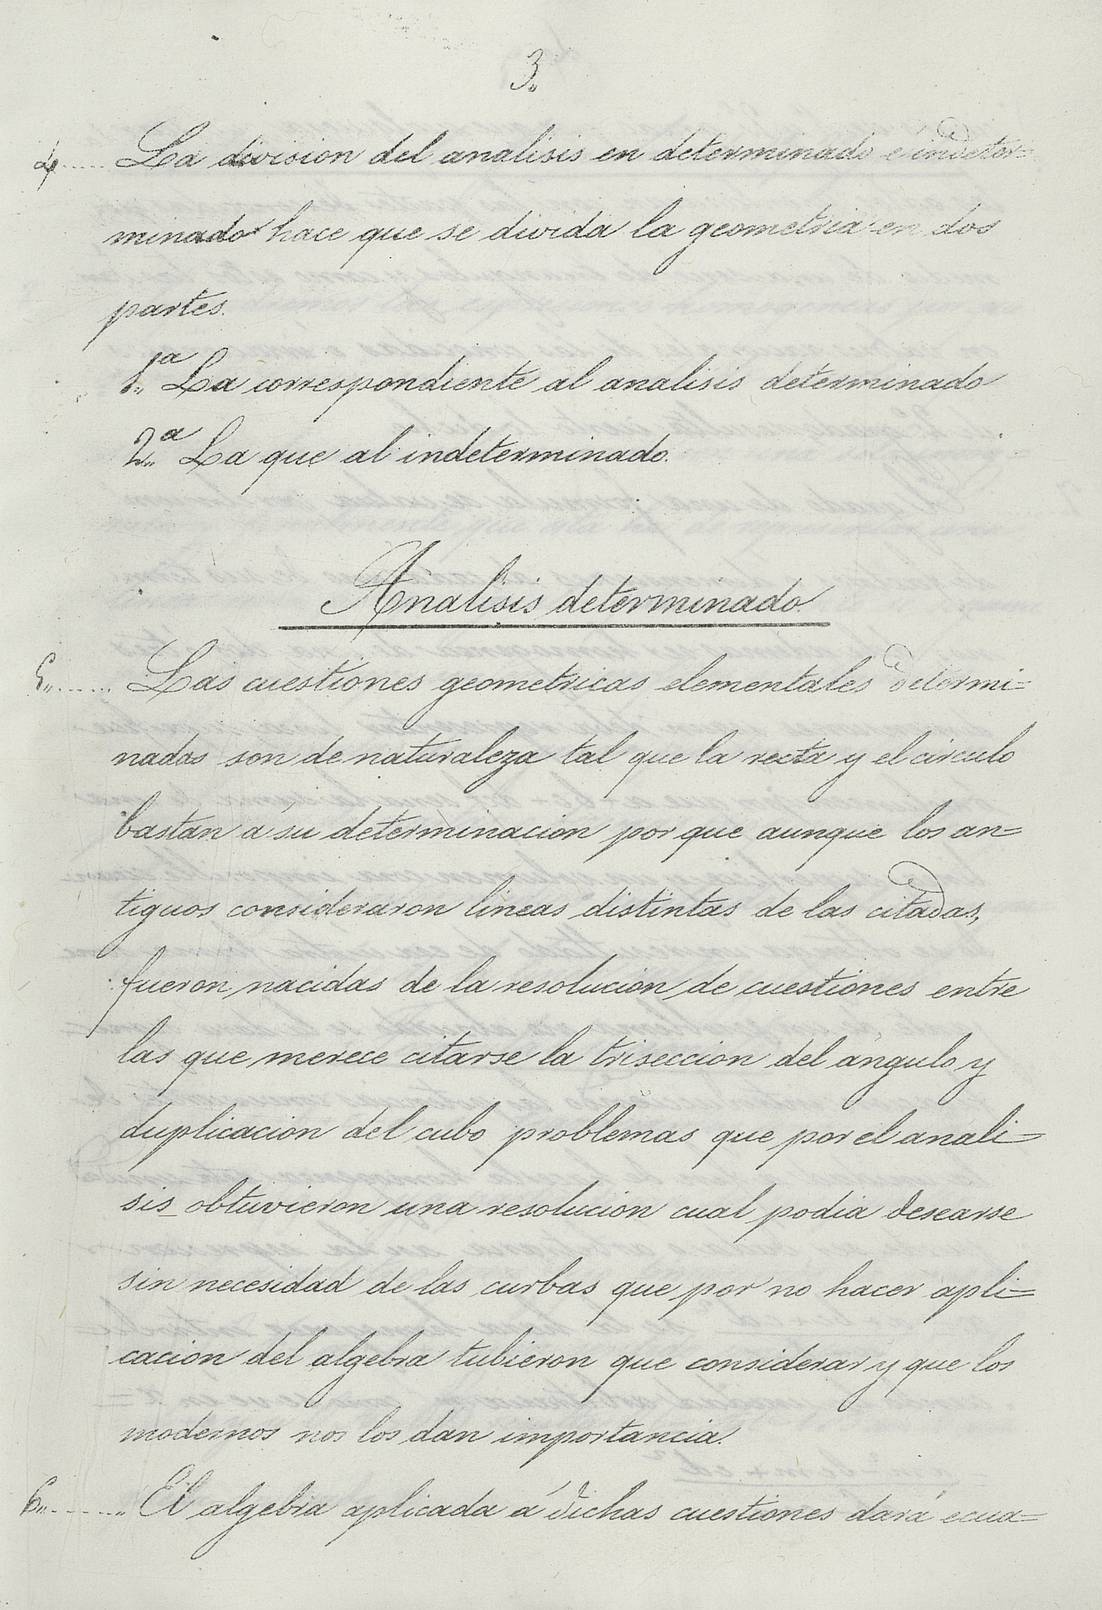 3.
4. La division del analisis en determinado é indeter=
minado hace que se divida la geometria en dos
partes.
1.ª La correspondiente al analisis determinado
2.ª La que al indeterminado.
Analisis determinado.
5. Las cuestiones geometricas elementales determi=
nadas son de naturaleza tal que la recta y el circulo
bastan á su determinacion por que aunque los an=
tiguos consideraron lineas distintas de las citadas,
fueron nacidas de la resolucion de cuestiones entre
las que merece citarse la triseccion del ángulo y
duplicacion del cubo problemas que por el anali=
sis obtuvieron una resolucion cual podia desearse
sin necesidad de las curbas que por no hacer apli=
cacion del algebra tubieron que considerar y que los
modernos nos los dan importancia.
6. El algebra aplicada á dichas cuestiones dará ecua=